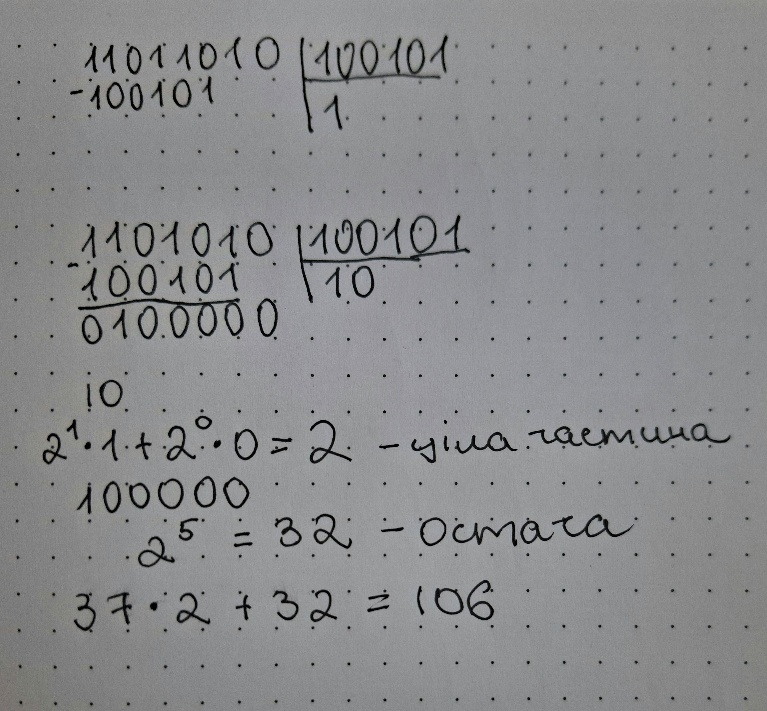 11011010 | 100101
-100101 | 1
1101010 | 100101
-100101 | 10
0100000
10
2¹·1+2⁰·0=2 - ціла частина
100000
2⁵ = 32 - остача
37·2 + 32 = 106